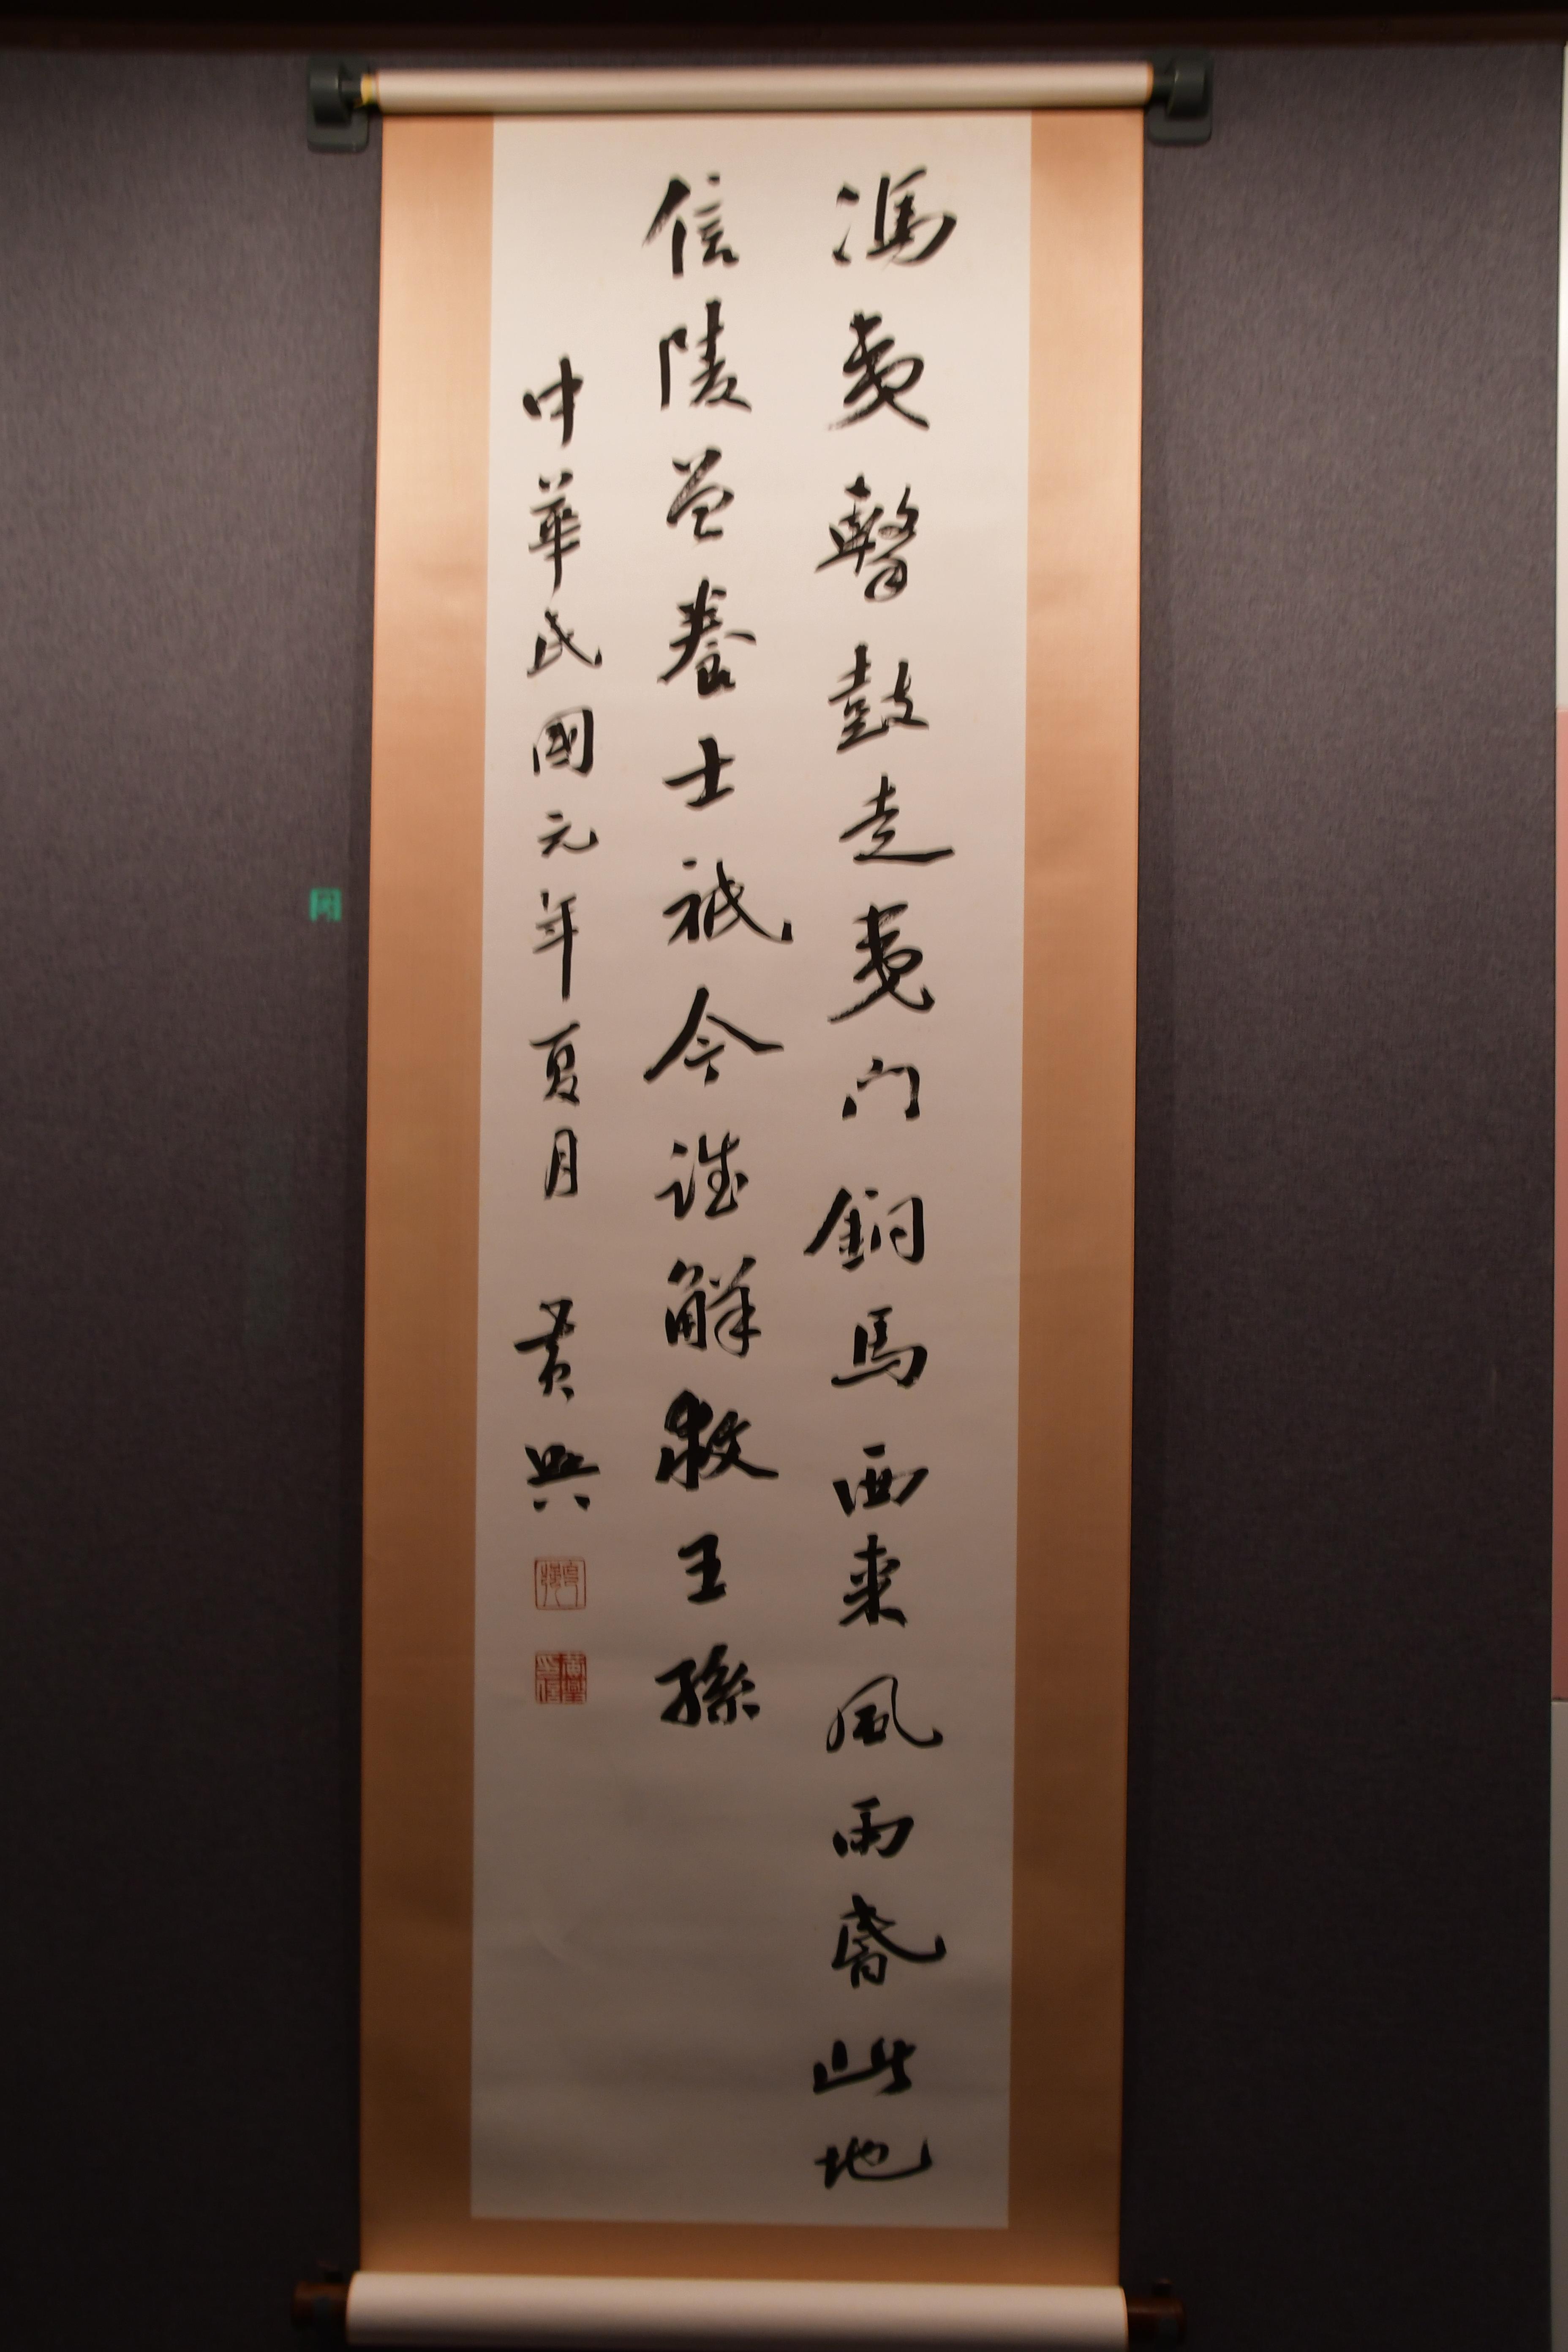 馮夷擊鼓走夷門銅馬西來風雨昏此地
信陵曾養士祇今誰解救王孫
中華民國元年夏月 黃興